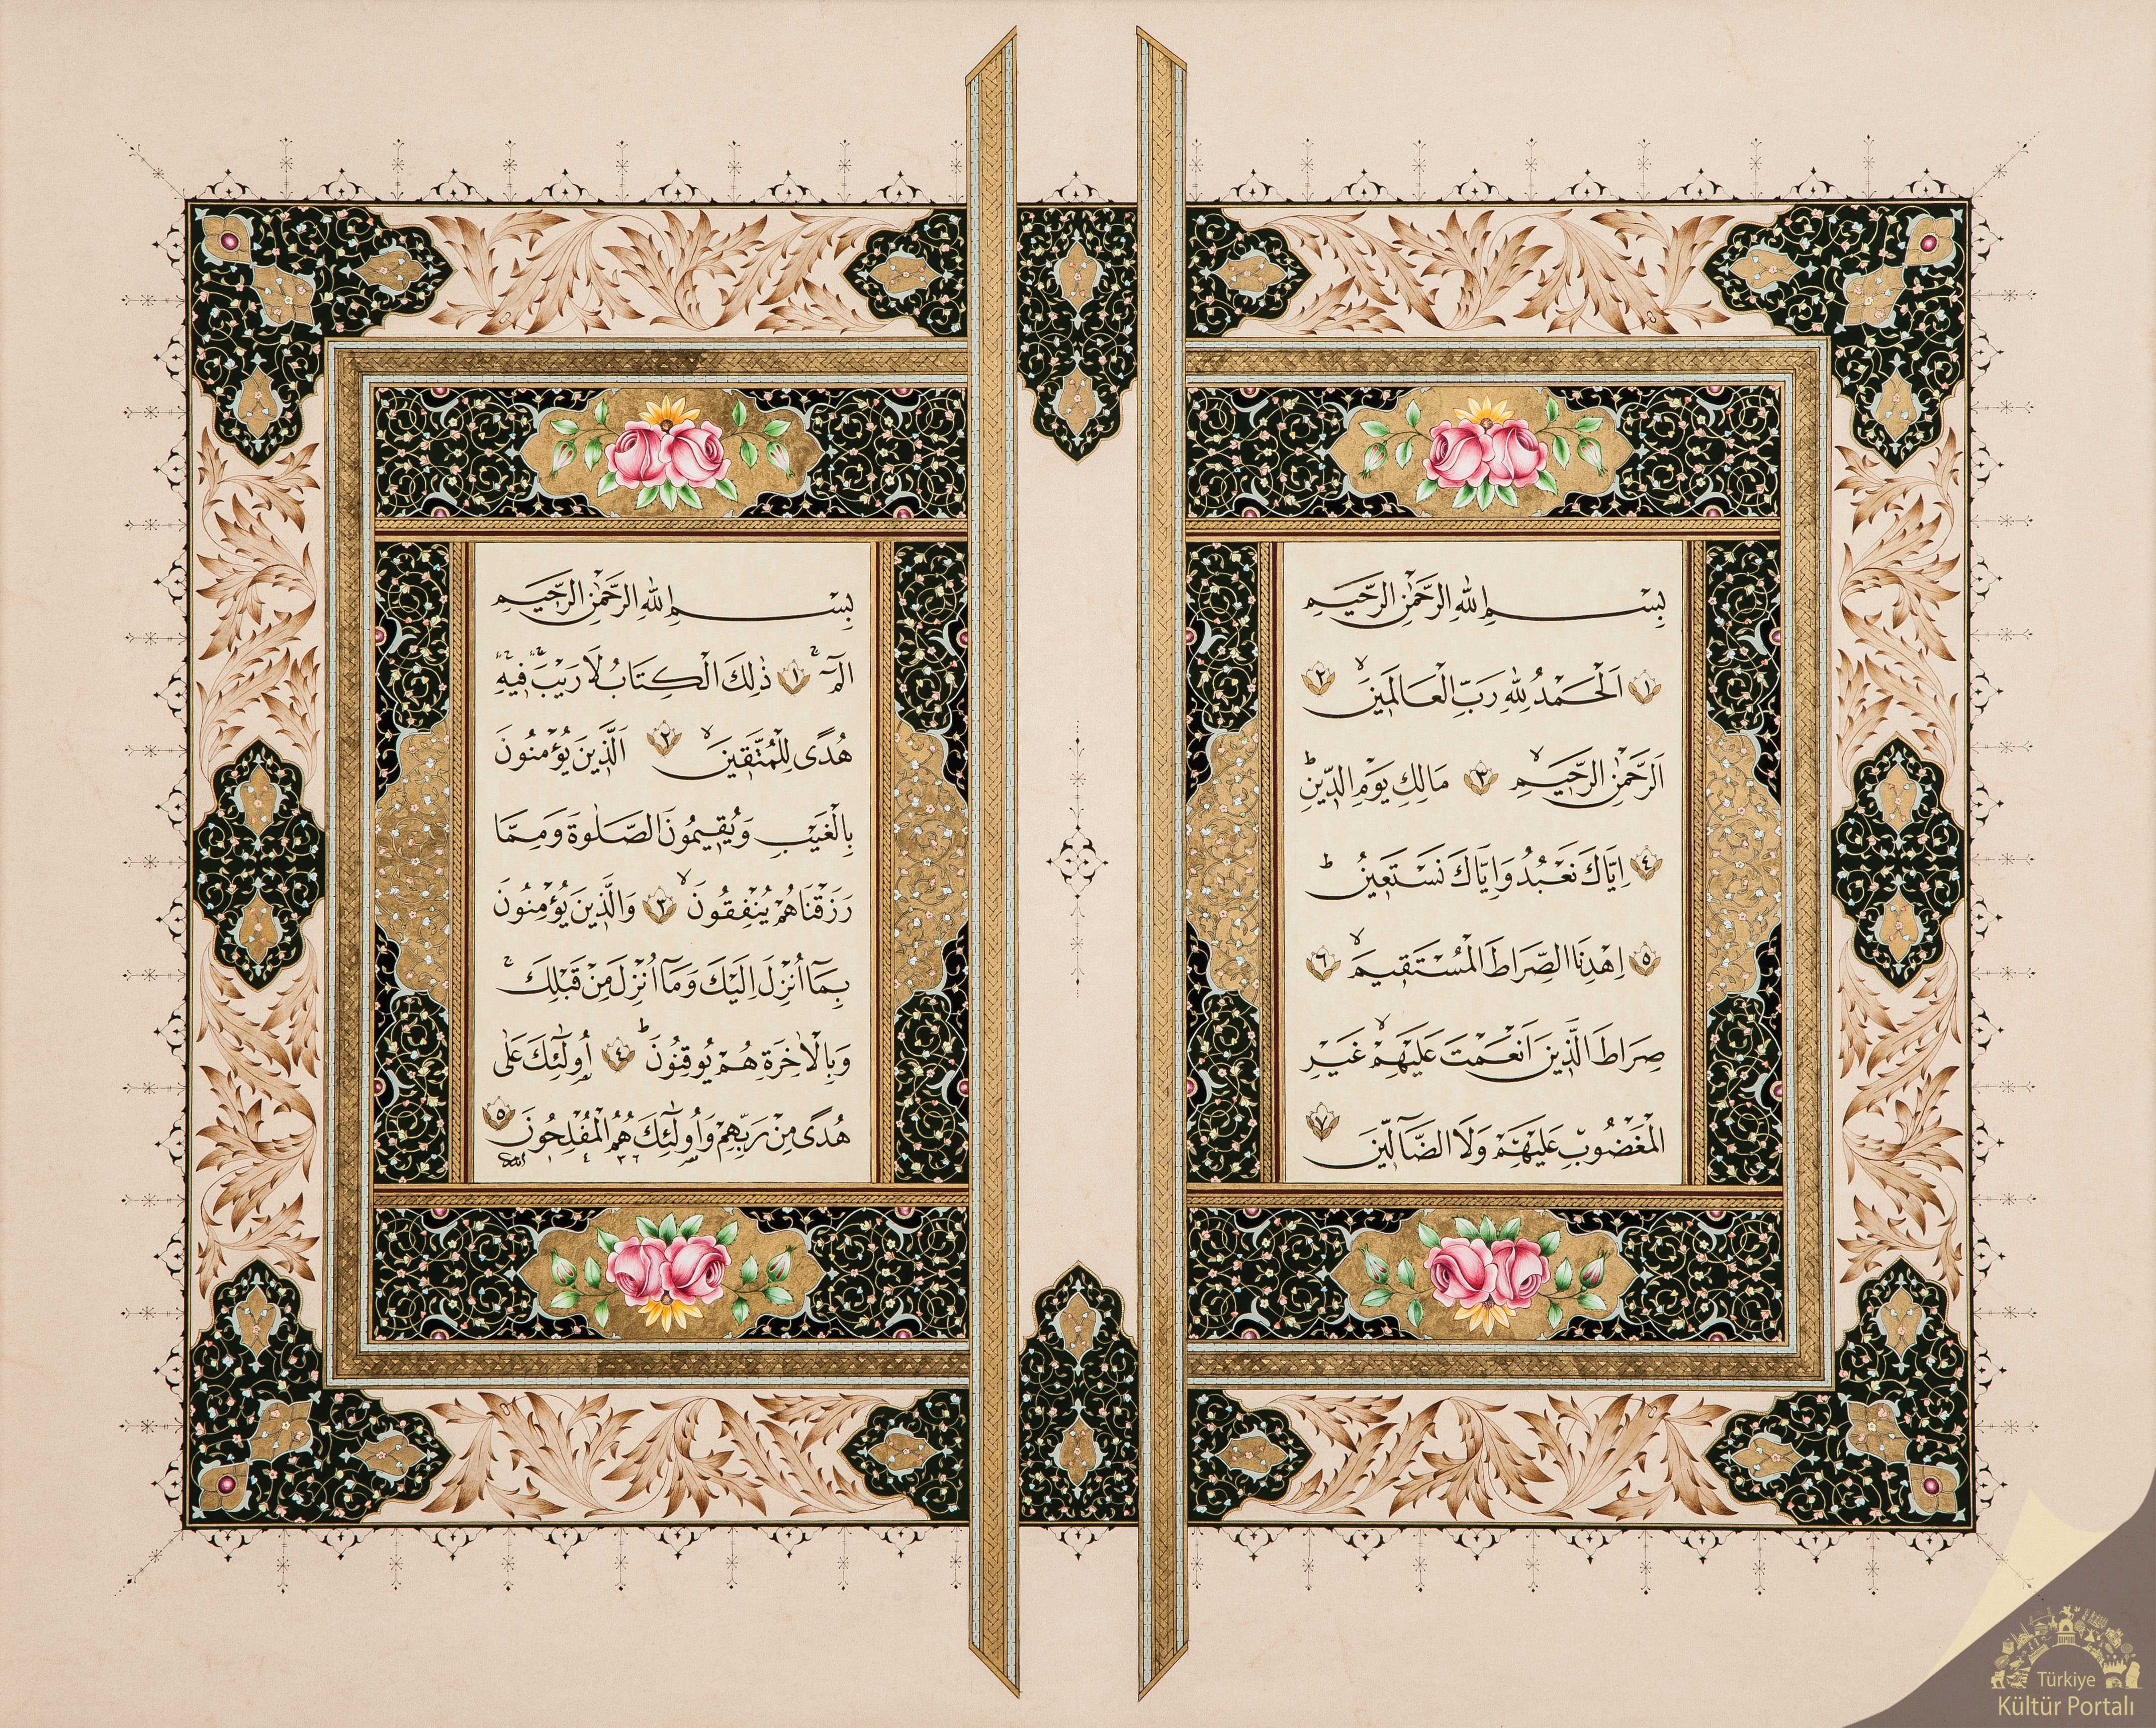 بِسْمِ اللهِ الرَّحْمٰنِ الرَّحِيمِ
١ اَلْحَمْدُ لِلّٰهِ رَبِّ الْعَالَمِينَ ٢
اَلرَّحْمٰنِ الرَّحِيمِ ٣ مَالِكِ يَوْمِ الدِّينِ
٤ اِيَّاكَ نَعْبُدُ وَاِيَّاكَ نَسْتَعِينُ
٥ اِهْدِنَا الصِّرَاطَ الْمُسْتَقِيمَ ٦
صِرَاطَ الَّذِينَ اَنْعَمْتَ عَلَيْهِمْ غَيْرِ
الْمَغْضُوبِ عَلَيْهِمْ وَلَا الضَّٓالِّينَ ٧
بِسْمِ اللهِ الرَّحْمٰنِ الرَّحِيمِ
الٓمٓ ١ ذٰلِكَ الْكِتَابُ لَا رَيْبَ فِيهِ
هُدًى لِلْمُتَّقِينَ ٢ اَلَّذِينَ يُؤْمِنُونَ
بِالْغَيْبِ وَيُقِيمُونَ الصَّلٰوةَ وَمِمَّا
رَزَقْنَاهُمْ يُنْفِقُونَ ٣ وَالَّذِينَ يُؤْمِنُونَ
بِمَٓا اُنْزِلَ اِلَيْكَ وَمَٓا اُنْزِلَ مِنْ قَبْلِكَ
وَبِالْاٰخِرَةِ هُمْ يُوقِنُونَ ٤ اُولٰٓئِكَ عَلٰى
هُدًى مِنْ رَبِّهِمْ وَاُولٰٓئِكَ هُمُ الْمُفْلِحُونَ ٥
Türkiye
Kültür Portalı